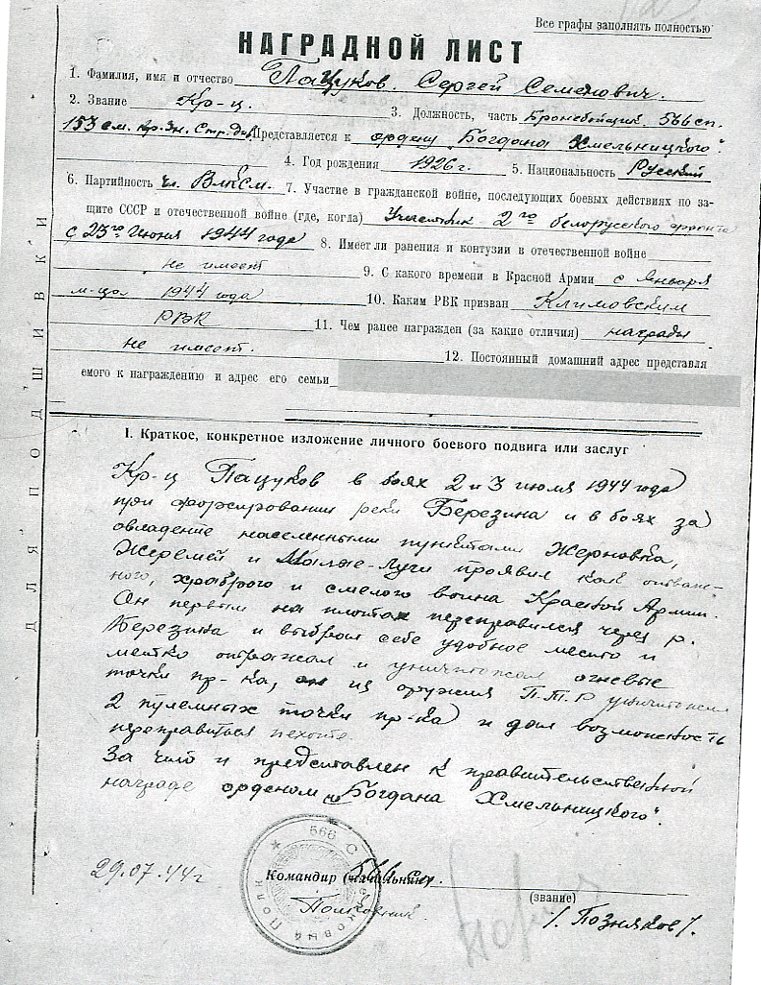 Все графы заполнять полностью
НАГРАДНОЙ ЛИСТ
1. Фамилия, имя и отчество Пацуков Сергей Семенович.
2. Звание Кр-ц. 3. Должность, часть Бронебойщик 566 сп.
153 см. Кр. Зн. Стр. Див. Представляется к ордену „Богдана Хмельницкого".
4. Год рождения 1926 г. 5. Национальность Русский
6. Партийность чл. ВЛКСМ. 7. Участие в гражданской войне, последующих боевых действиях по за-
щите СССР и отечественной войне (где, когда) Участник 2го белорусского фронта
с 23го Июня 1944 года 8. Имеет ли ранения и контузии в отечественной войне
не имеет 9. С какого времени в Красной Армии с Января
м-ца 1944 года 10. Каким РВК призван Климовским
РВК 11. Чем ранее награжден (за какие отличия) награды
не имеет. 12. Постоянный домашний адрес представля
емого к награждению и адрес его семьи
ДЛЯ ПОДШИВКИ
I. Краткое, конкретное изложение личного боевого подвига или заслуг
Кр-ц Пацуков в боях 2 и 3 июля 1944 года
при форсировании реки Березина и в боях за
овладение населенными пунктами Жерновка,
Жеремей и Малые-Луги проявил как отваж-
ного, храброго и смелого воина Красной Армии.
Он первым на плотах переправился через р.
Березина и выброл себе удобное место и
метко отражал и уничтожал огневые
точки пр-ка, он из оружия П.Т.Р уничтожил
2 пулемных точки пр-ка и дал возможность
переправиться пехоте.
За что и представлен к правительственной
награде орденом „Богдана Хмельницкого".
29.07.44 г
Командир (начальник) 566 сп.
Полковник. (звание)
/. Позняков /.
566 С
ковый Полк